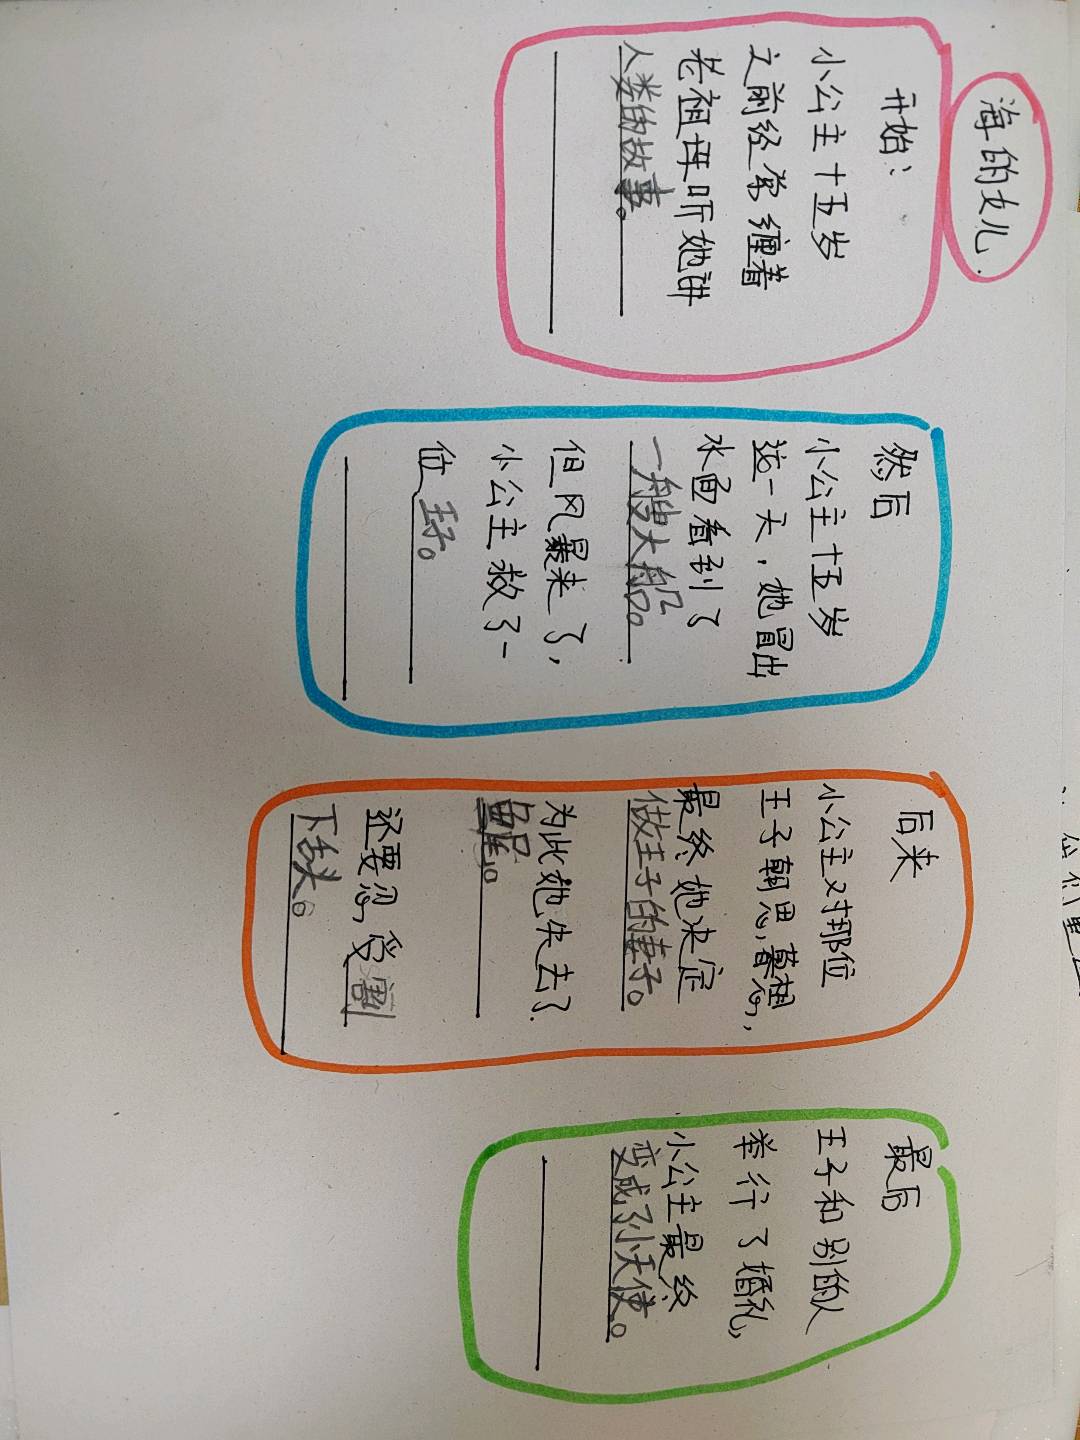 海的女儿.
开始:
小公主十五岁
之前经常缠着
老祖母听她讲
人类的故事。
然后
小公主十五岁
这一天，她冒出
水面看到了
一艘大船。
但风暴来了，
小公主救了一
位王子。
后来
小公主对那位
王子朝思暮想，
最终她决定
做王子的妻子。
为此她失去了.
鱼尾。
还要忍受割
下舌头。
最后
王子和别的人
举行了婚礼，
小公主最终
变成了小天使。